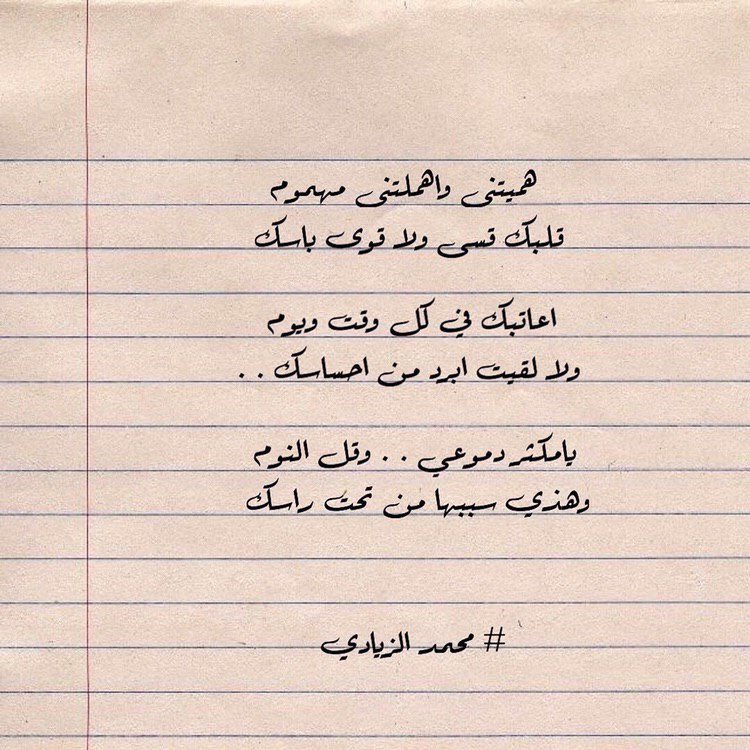 هميتنى واهملتنى مهموم
قلبك قسى ولا قوى باسك
اعاتبك في كل وقت ويوم
ولا لقيت ابرد من احساسك . .
يامكثر دموعي . . وقل النوم
وهذي سببها من تحت راسك
# محمد الزيادي